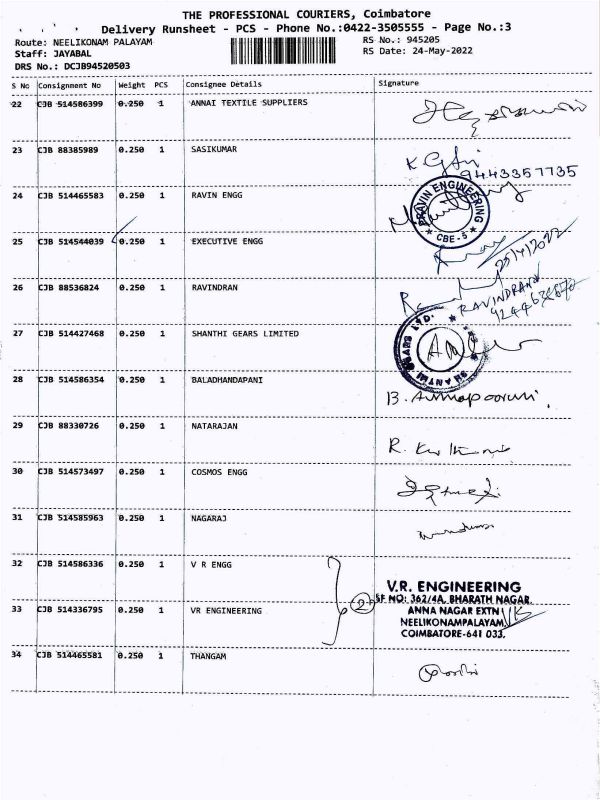 THE PROFESSIONAL COURIERS, Coimbatore
Delivery Runsheet - PCS - Phone No.:0422-3505555 - Page No.:3
Route: NEELIKONAM PALAYAM RS No.: 945205
Staff: JAYABAL RS Date: 24-May-2022
DRS No.: DCJB94520503
S No Consignment No Weight PCS Consignee Details Signature
22 CJB 514586399 0.250 1 ANNAI TEXTILE SUPPLIERS
23 CJB 88385989 0.250 1 SASIKUMAR
9443357735
24 CJB 514465583 0.250 1 RAVIN ENGG
PRAVIN ENGINEERING
* CBE-5 *
25 CJB 514544039 0.250 1 EXECUTIVE ENGG
26 CJB 88536824 0.250 1 RAVINDRAN
RAVINDRAN
27 CJB 514427468 0.250 1 SHANTHI GEARS LIMITED
SHANTHI GEARS LTD.
28 CJB 514586354 0.250 1 BALADHANDAPANI
B. Annapoorani
29 CJB 88330726 0.250 1 NATARAJAN
30 CJB 514573497 0.250 1 COSMOS ENGG
31 CJB 514585963 0.250 1 NAGARAJ
32 CJB 514586336 0.250 1 V R ENGG
2
V.R. ENGINEERING
SF NO: 362/4A, BHARATH NAGAR,
33 CJB 514336795 0.250 1 VR ENGINEERING
ANNA NAGAR EXTN
NEELIKONAMPALAYAM,
COIMBATORE-641 033.
34 CJB 514465581 0.250 1 THANGAM